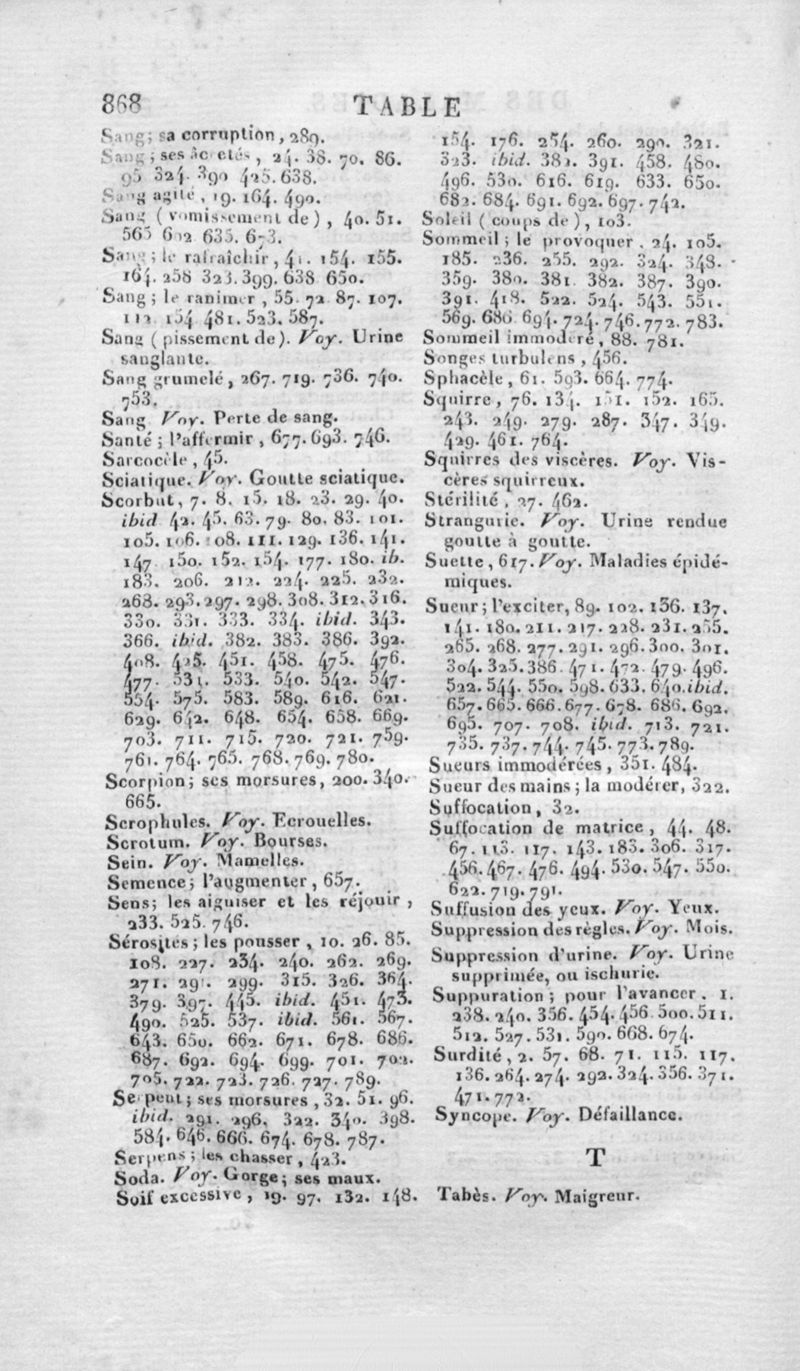 868 TABLE
Sang; sa corruption, 289.
Sang; ses âcretés, 24. 38. 70. 86.
95 324. 390 425. 638.
Sang agité, 19. 164. 490.
Sang (vomissement de), 40. 51.
565 602 635. 673.
Sang; le rafraîchir, 41. 154. 155.
164. 258 323. 399. 638 650.
Sang; le ranimer, 55. 72 87. 107.
112 154 481. 523. 587.
Sang (pissement de). Voy. Urine
sanglante.
Sang grumelé, 267. 719. 736. 740.
753.
Sang Voy. Perte de sang.
Santé; l'affermir, 677. 693. 746.
Sarcocèle, 45.
Sciatique. Voy. Goutte sciatique.
Scorbut, 7. 8. 15. 18. 23. 29. 40.
ibid 42. 45. 63. 79. 80. 83. 101.
105. 106. 108. 111. 129. 136. 141.
147 150. 152. 154. 177. 180. ib.
183. 206. 212. 224. 225. 232.
268. 293. 297. 298. 308. 312. 316.
330. 331. 333. 334. ibid. 343.
366. ibid. 382. 383. 386. 392.
408. 425. 451. 458. 475. 476.
477. 531. 533. 540. 542. 547.
554. 575. 583. 589. 616. 621.
629. 642. 648. 654. 658. 669.
703. 711. 715. 720. 721. 759.
761. 764. 765. 768. 769. 780.
Scorpion; ses morsures, 200. 340.
665.
Scrophules. Voy. Ecrouelles.
Scrotum. Voy. Bourses.
Sein. Voy. Mamelles.
Semence; l'augmenter, 657.
Sens; les aiguiser et les réjouir,
233. 525. 746.
Sérosités; les pousser, 10. 26. 85.
108. 227. 234. 240. 262. 269.
271. 291. 299. 315. 326. 364.
379. 397. 445. ibid. 451. 473.
490. 525. 537. ibid. 561. 567.
643. 650. 662. 671. 678. 686.
687. 692. 694. 699. 701. 702.
705. 722. 723. 726. 727. 789.
Serpent; ses morsures, 32. 51. 96.
ibid. 291. 296. 322. 340. 398.
584. 646. 666. 674. 678. 787.
Serpens; les chasser, 423.
Soda. Voy. Gorge; ses maux.
Soif excessive, 19. 97. 132. 148.
154. 176. 254. 260. 290. 321.
323. ibid. 381. 391. 458. 480.
496. 530. 616. 619. 633. 650.
682. 684. 691. 692. 697. 742.
Soleil (coups de), 103.
Sommeil; le provoquer, 24. 105.
185. 236. 255. 292. 324. 348.
359. 380. 381 382. 387. 390.
391. 418. 522. 524. 543. 551.
569. 686 694. 724. 746. 772. 783.
Sommeil immodéré, 88. 781.
Songes turbulens, 456.
Sphacèle, 61. 593. 664. 774.
Squirre, 76. 134. 151. 152. 165.
243. 249. 279. 287. 347. 349.
429. 461. 764.
Squirres des viscères. Voy. Vis-
cères squirreux.
Stérilité, 27. 462.
Strangurie. Voy. Urine rendue
goutte à goutte.
Suette, 617. Voy. Maladies épidé-
miques.
Sueur; l'exciter, 89. 102. 136. 137.
141. 180. 211. 217. 228. 231. 255.
265. 268. 277. 291. 296. 300. 301.
304. 325. 386. 471. 472. 479. 496.
522. 544. 550. 598. 633. 640. ibid.
657. 665. 666. 677. 678. 686. 692.
695. 707. 708. ibid. 713. 721.
735. 737. 744. 745. 773. 789.
Sueurs immodérées, 351. 484.
Sueur des mains; la modérer, 322.
Suffocation, 32.
Suffocation de matrice, 44. 48.
67. 113. 117. 143. 183. 306. 317.
456. 467. 476. 494. 530. 547. 550.
622. 719. 791.
Suffusion des yeux. Voy. Yeux.
Suppression des règles. Voy. Mois.
Suppression d'urine. Voy. Urine
supprimée, ou ischurie.
Suppuration; pour l'avancer. 1.
238. 240. 356. 454. 456. 500. 511.
512. 527. 531. 590. 668. 674.
Surdité, 2. 57. 68. 71. 115. 117.
136. 264. 274. 292. 324. 356. 371.
471. 772.
Syncope. Voy. Défaillance.
T
Tabès. Voy. Maigreur.